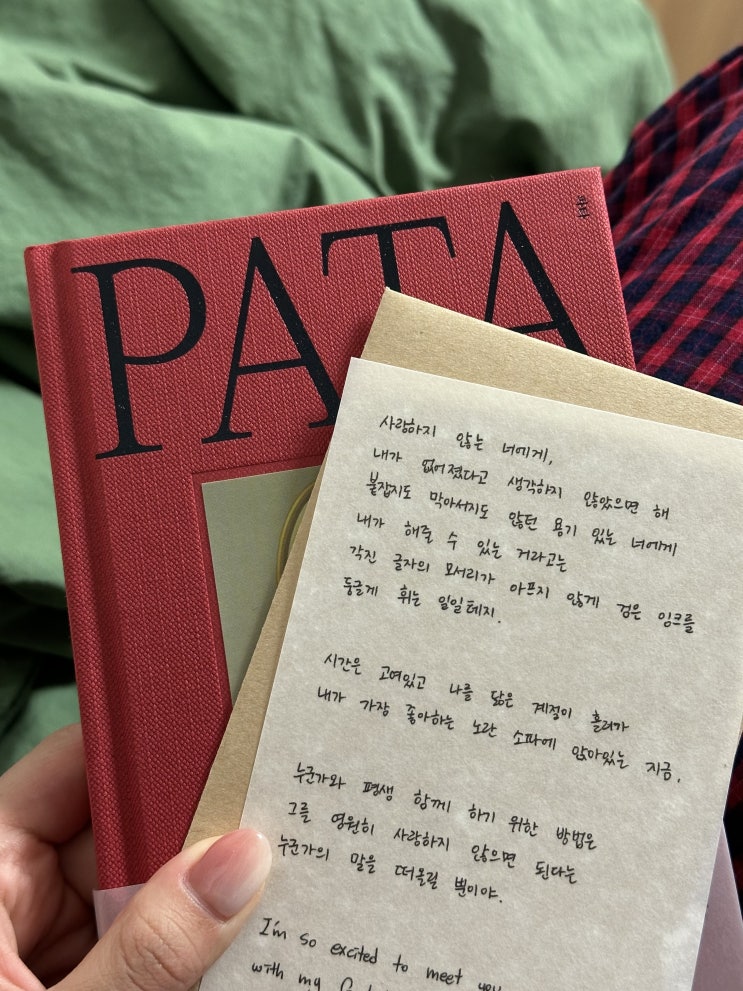 PATA
사랑하지 않는 너에게,
내가 없어졌다고 생각하지 않았으면 해
붙잡지도 막아서지도 않던 용기 있는 너에게
내가 해줄 수 있는 거라고는
각진 글자의 모서리가 아프지 않게 검은 잉크를
둥글게 휘는 일일테지.
시간은 고여있고 나를 닮은 계절이 흘러가
내가 가장 좋아하는 노란 소파에 앉아있는 지금,
누군가와 평생 함께 하기 위한 방법은
그를 영원히 사랑하지 않으면 된다는
누군가의 말을 떠올릴 뿐이야.
I'm so excited to meet you
with my